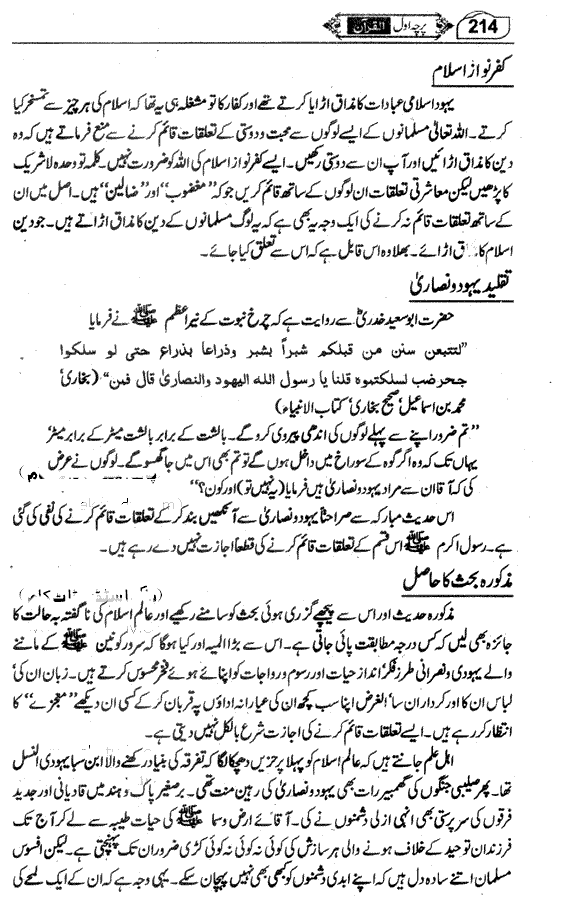 214 القرآن پرچہ اول
کفر نواز اسلام
یہود اسلامی عبادات کا مذاق اڑایا کرتے تھے اور کفار کا تو مشغلہ ہی یہ تھا کہ اسلام کی ہر چیز سے تمسخر کیا
کرتے۔ اللہ تعالیٰ مسلمانوں کے ایسے لوگوں سے محبت و دوستی کے تعلقات قائم کرنے سے منع فرماتے ہیں کہ وہ
دین کا مذاق اڑائیں اور آپ ان سے دوستی رکھیں۔ ایسے کفر نواز اسلام کی اللہ کو ضرورت نہیں۔ کلمہ تو وحدہ لاشریک
کا پڑھیں لیکن معاشرتی تعلقات ان لوگوں کے ساتھ قائم کریں جو کہ ”مغضوب“ اور ”ضالین“ ہیں۔ اصل میں ان
کے ساتھ تعلقات قائم نہ کرنے کی ایک وجہ یہ بھی ہے کہ یہ لوگ مسلمانوں کے دین کا مذاق اڑاتے ہیں۔ جو دین
اسلام کا مذاق اڑائے۔ بھلا وہ اس قابل ہے کہ اس سے تعلق کیا جائے۔
تقلید یہود و نصاریٰ
حضرت ابو سعید خدریؓ سے روایت ہے کہ چرخ نبوت کے نیر اعظم ﷺ نے فرمایا
”لتتبعن سنن من قبلكم شبراً بشبر وذراعا بذراع حتى لو سلكوا
جحر ضب لسلكتموه قلنا يا رسول الله اليهود والنصارى قال فمن“ (بخاری‘
محمد بن اسماعیل‘ صحیح بخاری‘ کتاب الانبیاء)
”تم ضرور اپنے سے پہلے لوگوں کی اندھی پیروی کرو گے۔ بالشت کے برابر بالشت میٹر کے برابر میٹر
یہاں تک کہ وہ اگر گوہ کے سوراخ میں داخل ہوں گے تو تم بھی اس میں جا گھسو گے۔ لوگوں نے عرض
کی کہ آقا ان سے مراد یہود و نصاریٰ ہیں فرمایا (یہ نہیں تو) اور کون؟“
اس حدیث مبارکہ سے صراحتاً یہود و نصاریٰ سے آنکھیں بند کر کے تعلقات قائم کرنے کی نفی کی گئی
ہے۔ رسول اکرم ﷺ اس قسم کے تعلقات قائم کرنے کی قطعاً اجازت نہیں دے رہے ہیں۔
مذکورہ بحث کا حاصل
مذکورہ حدیث اور اس سے پیچھے گزری ہوئی بحث کو سامنے رکھیے اور عالم اسلام کی ناگفتہ بہ حالت کا
جائزہ بھی لیں کہ کس درجہ مطابقت پائی جاتی ہے۔ اس سے بڑا المیہ اور کیا ہوگا کہ سرور کونین ﷺ کے ماننے
والے یہودی و نصرانی طرز فکر‘ انداز حیات اور رسوم و رواجات کو اپناتے ہوئے فخر محسوس کرتے ہیں۔ زبان ان کی
لباس ان کا اور کردار ان سا‘ الغرض اپنا سب کچھ ان کی عیارانہ اداؤں پہ قربان کر کے کسی ان دیکھے ”معجزے“ کا
انتظار کر رہے ہیں۔ ایسے تعلقات قائم کرنے کی اجازت شرع بالکل نہیں دیتی ہے۔
اہل علم جانتے ہیں کہ عالم اسلام کو پہلا پر حزیں دھچکا لگا کہ تفرقہ کی بنیاد رکھنے والا ابن سبا یہودی النسل
تھا۔ پھر صلیبی جنگوں کی گھمبیر رات بھی یہود و نصاریٰ کی رہین منت تھی۔ برصغیر پاک و ہند میں قادیانی اور جدید
فرقوں کی سرپرستی بھی انہی ازلی دشمنوں نے کی۔ آقائے ارض و سما ﷺ کی حیات طیبہ سے لے کر آج تک
فرزندان توحید کے خلاف ہونے والی ہر سازش کی کوئی نہ کوئی نہ کوئی کڑی ضرور ان تک پہنچتی ہے۔ لیکن افسوس
مسلمان اتنے سادہ دل ہیں کہ اپنے ابدی دشمنوں کو کبھی بھی نہیں پہچان سکے۔ یہی وجہ ہے کہ ان کے ایک لمحے کی